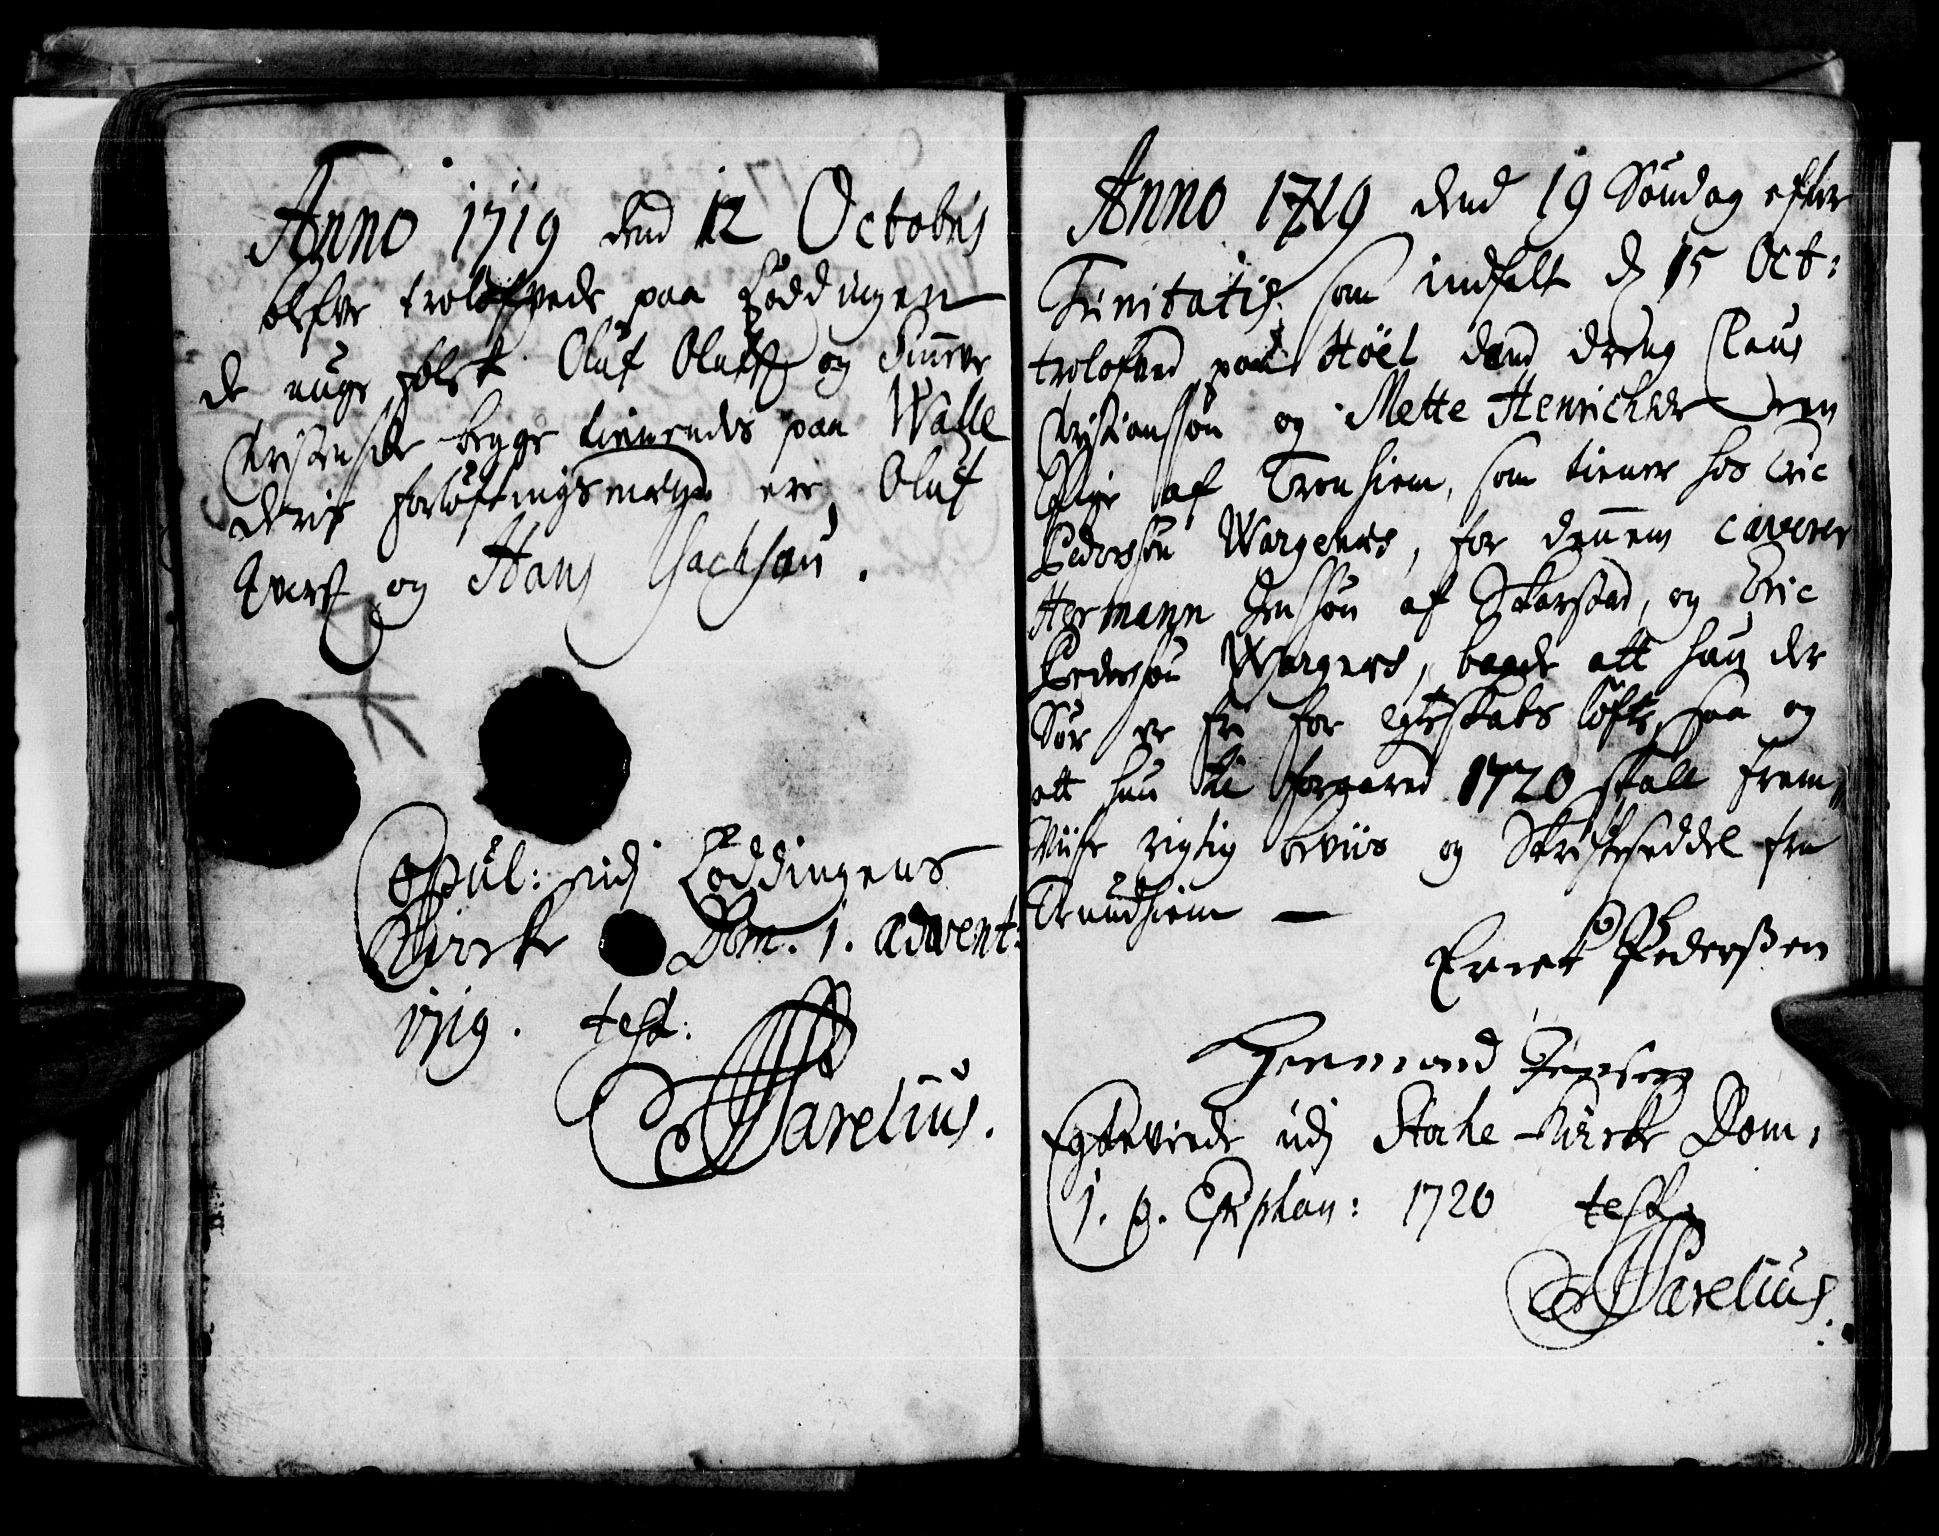 Anno 1719 dend 12 Octobris
blefve trolofvede paa Löddingen
de unge folck Oluf Olufs: og Sinneve
Cristensdr begge tienendes paa Walle
deris forlöftningsmænd ere, Oluf
Ivers: og Hans Jachsøn.
Copul: udj Löddingens
Kircke Dom. 1. advent:
1719. test:
Parelius.
Anno 1719 dend 19 Søndag efter
Trinitatis, som indfalt d 15 Oct:
trolofved paa Höel dend dreng Claus
Cristianssøn og Mette Henrichsdr een
Pige af Tronhiem, som tiener hos Eric
Pederssøn Wargenæs, for dennem caverer
Hermann Jenssøn af Skarstad, og Eric
Pederssøn Wargnæs, baade att han der
Sør er fri for egteskabs löfte, saa og
att hun til foraaret 1720 skall frem„
Viise rigtig beviis og Skriftseddel fra
Trundhiem —
Erick Pederßen
Hermand Jensen
Egteviede udj Stocke Kircke Dom,
1. p. Epiphan: 1720 test:
Parelius.